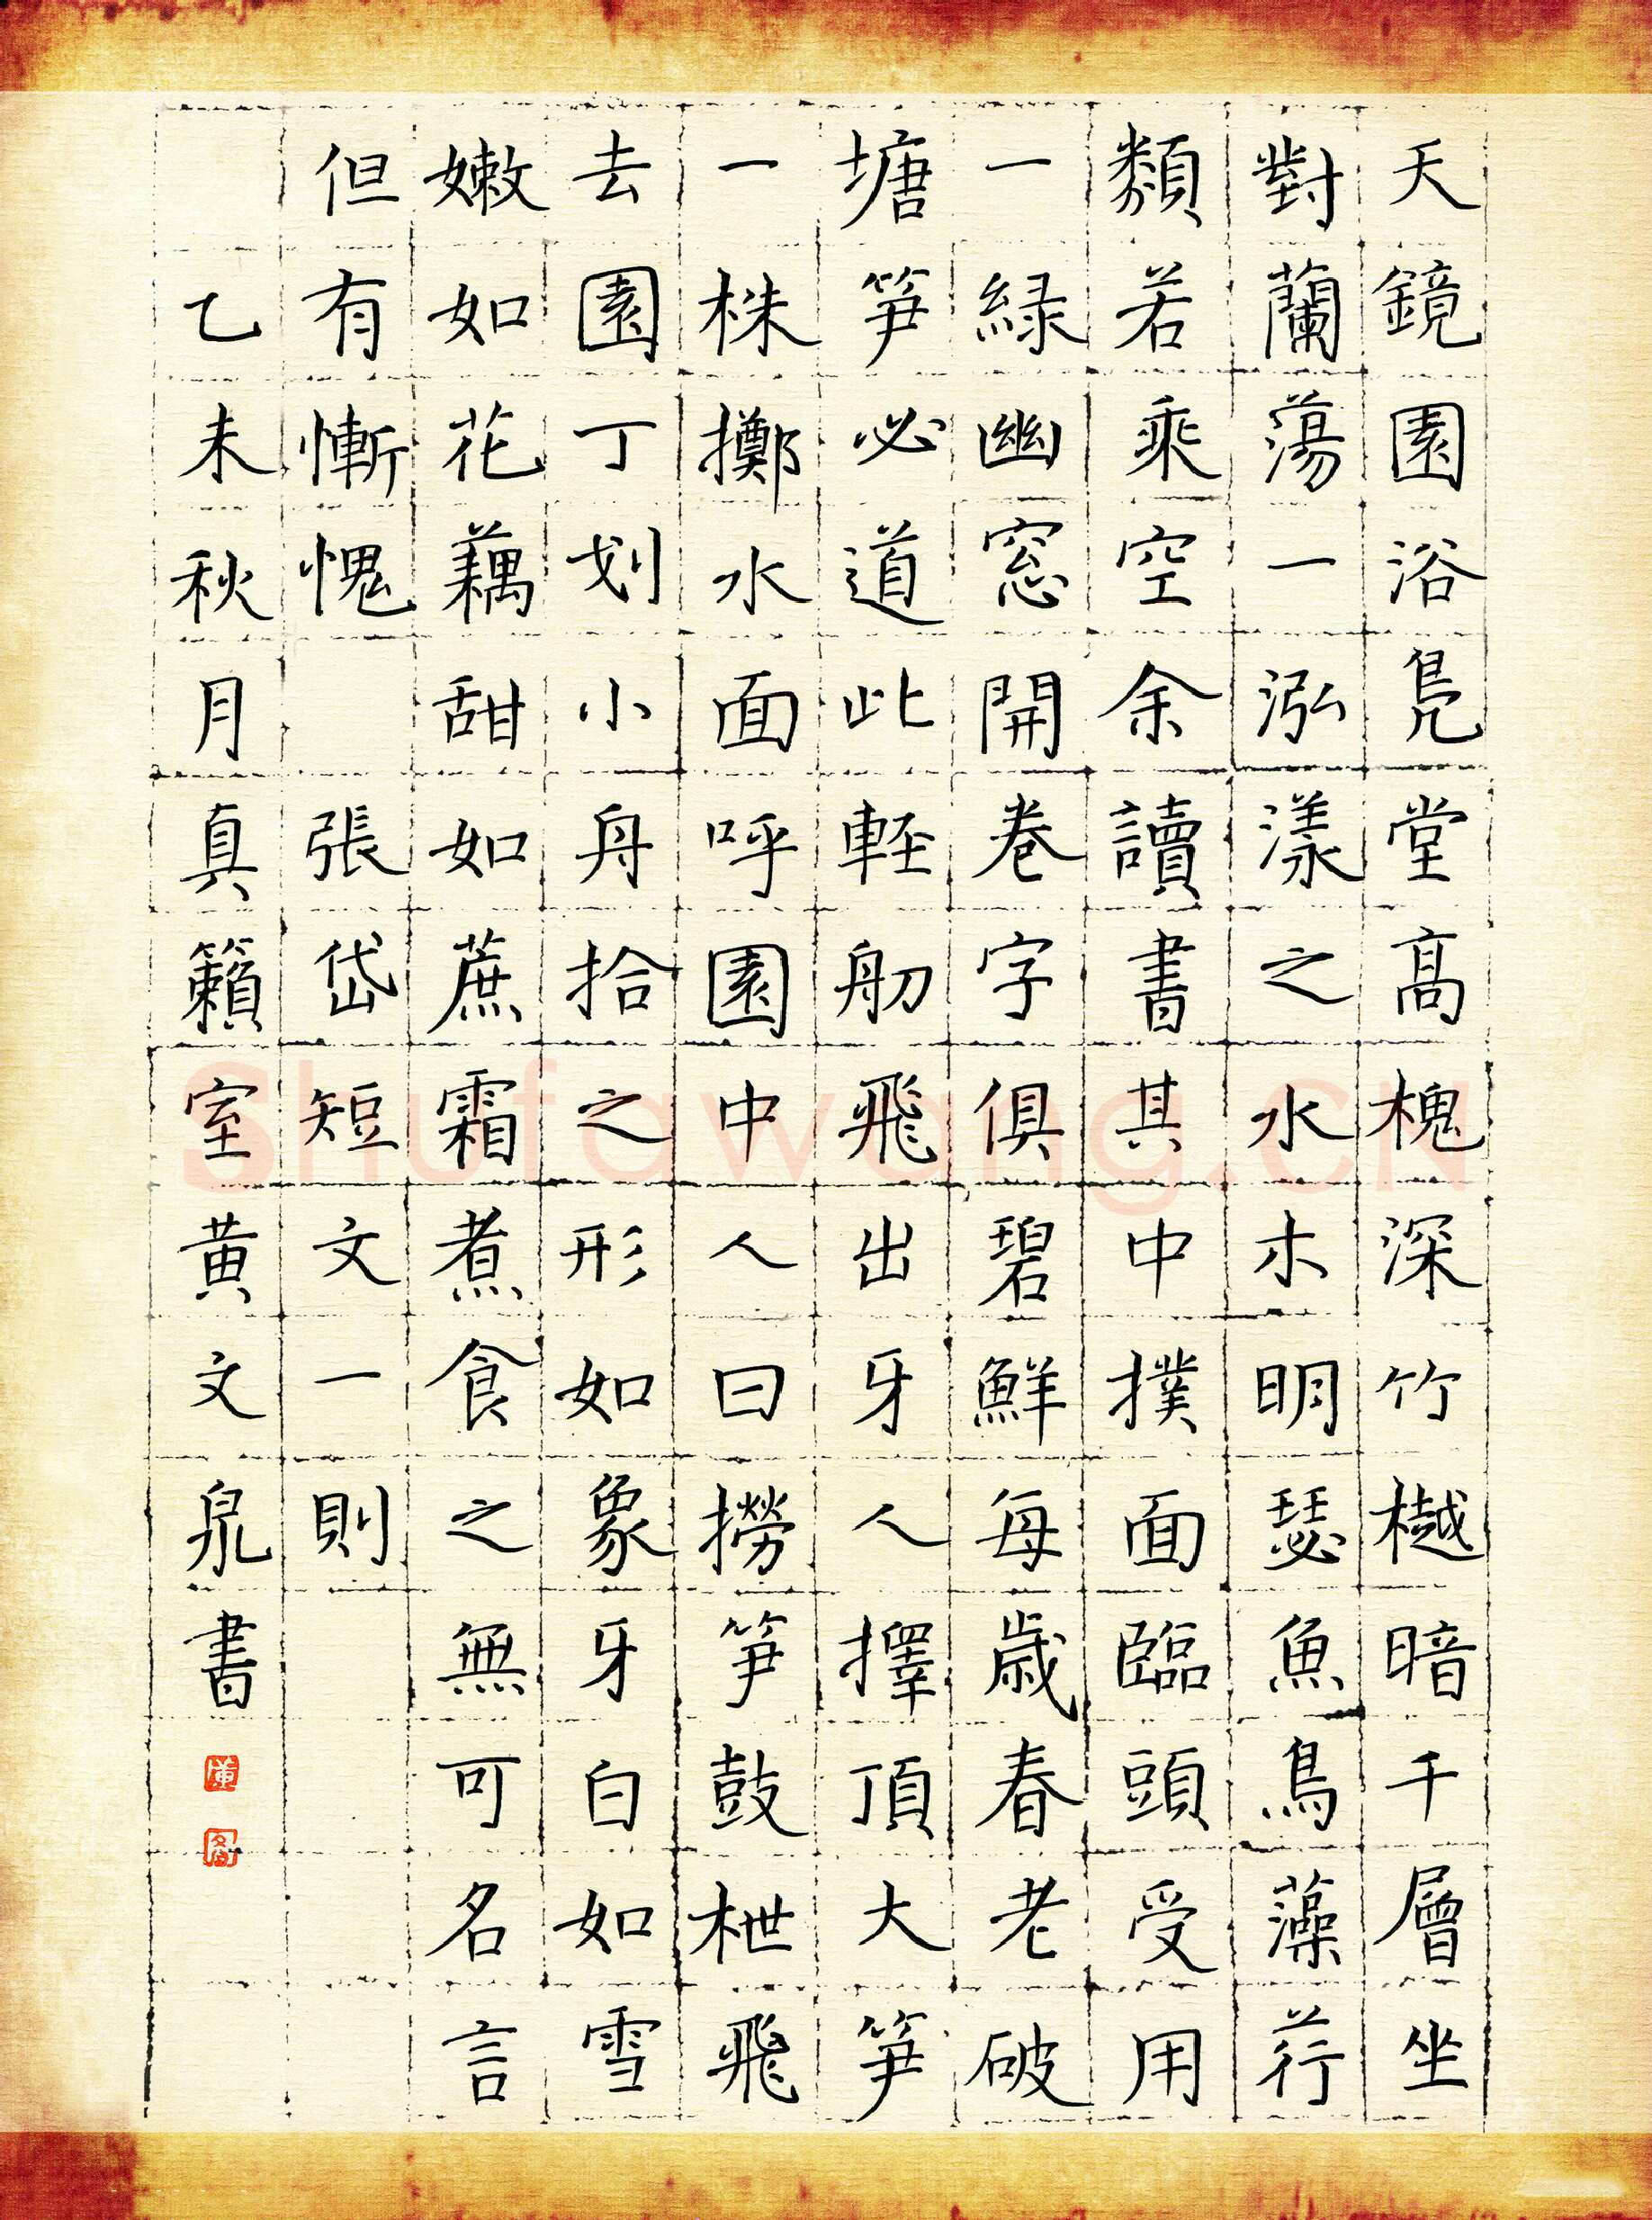 天鏡園浴凫堂高槐深竹樾暗千層坐
對蘭蕩一泓漾之水木明瑟魚鳥藻荇
類若乘空余讀書其中撲面臨頭受用
一緑幽窓開卷字俱碧鮮每歳春老破
塘笋必道此軽舠飛出牙人擇頂大笋
一株擲水面呼園中人曰撈笋鼓枻飛
去園丁划小舟拾之形如象牙白如雪
嫩如花藕甜如蔗霜煮食之無可名言
但有慚愧 張岱短文一則
乙未秋月真籟室黄文泉書
Shufawang.CN